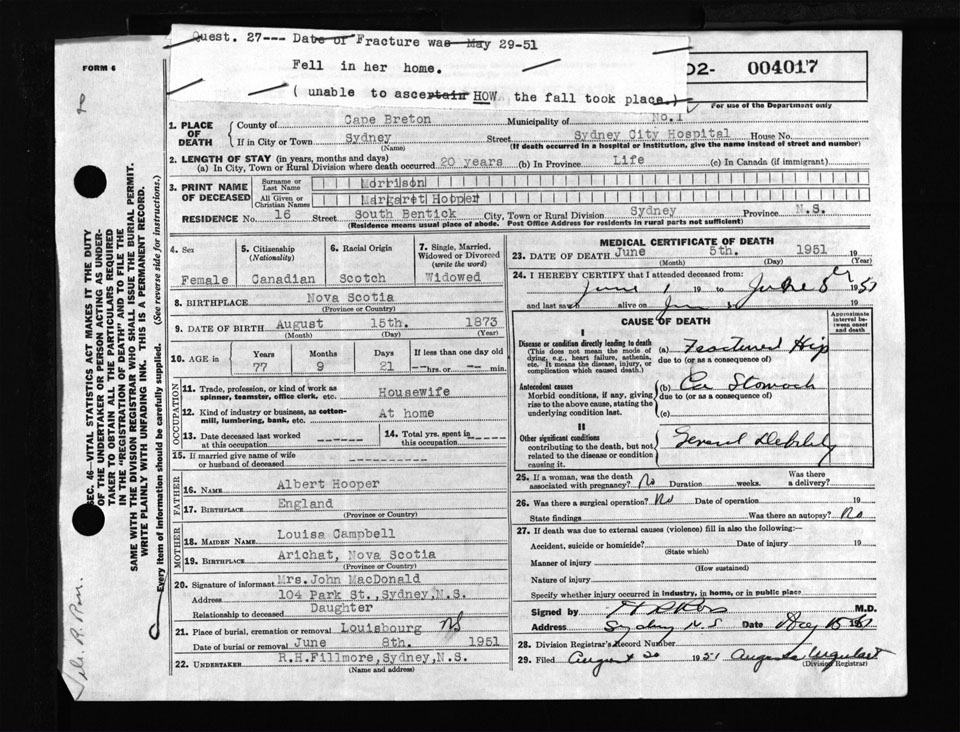 Quest. 27--- Date of Fracture was May 29-51
Fell in her home.
( unable to ascertain HOW the fall took place.)
FORM 6
D2- 004017
For use of the Department only
SEC. 46—VITAL STATISTICS ACT MAKES IT THE DUTY
OF THE UNDERTAKER OR PERSON ACTING AS UNDER-
TAKER TO OBTAIN ALL THE PARTICULARS REQUIRED
IN THE "REGISTRATION OF DEATH" AND TO FILE THE
SAME WITH THE DIVISION REGISTRAR WHO SHALL ISSUE THE BURIAL PERMIT.
WRITE PLAINLY WITH UNFADING INK. THIS IS A PERMANENT RECORD.
Every item of information should be carefully supplied. (See reverse side for instructions.)
1. PLACE OF DEATH
County of Cape Breton Municipality of No. 1
If in City or Town Sydney Street Sydney City Hospital House No.
(Name) (If death occurred in a hospital or institution, give the name instead of street and number)
2. LENGTH OF STAY (in years, months and days)
(a) In City, Town or Rural Division where death occurred 20 years (b) In Province Life (c) In Canada (if immigrant)
3. PRINT NAME OF DECEASED
Surname or Last Name Morrison
All Given or Christian Names Margaret Hooper
RESIDENCE No. 16 Street South Bentick City, Town or Rural Division Sydney Province N.S.
(Residence means usual place of abode. Post Office Address for residents in rural parts not sufficient)
4. Sex
Female
5. Citizenship
(Nationality)
Canadian
6. Racial Origin
Scotch
7. Single, Married,
Widowed or Divorced
(write the word)
Widowed
8. BIRTHPLACE Nova Scotia
(Province or Country)
9. DATE OF BIRTH August 15th. 1873
(Month) (Day) (Year)
10. AGE in Years Months Days If less than one day old
77 9 21 --hrs. or -- min.
OCCUPATION
11. Trade, profession, or kind of work as
spinner, teamster, office clerk, etc. Housewife
12. Kind of industry or business, as cotton-
mill, lumbering, bank, etc. At home
13. Date deceased last worked
at this occupation ------
14. Total yrs. spent in
this occupation ------
15. If married give name of wife
or husband of deceased ----------
FATHER
16. NAME Albert Hooper
17. BIRTHPLACE England
(Province or Country)
MOTHER
18. MAIDEN NAME Louisa Campbell
19. BIRTHPLACE Arichat, Nova Scotia
(Province or Country)
20. Signature of informant Mrs. John MacDonald
Address 104 Park St., Sydney, N.S.
Relationship to deceased Daughter
21. Place of burial, cremation or removal Louisbourg NS
Date of burial or removal June 8th. 1951
22. UNDERTAKER R.H.Fillmore, Sydney, N.S.
(Name and address)
MEDICAL CERTIFICATE OF DEATH
23. DATE OF DEATH June 5th. 1951
(Month) (Day) (Year)
24. I HEREBY CERTIFY that I attended deceased from:
June 1 19 to June 5 1951
and last saw alive on 19
CAUSE OF DEATH
Approximate
interval be-
tween onset
and death
I
Disease or condition directly leading to death
(This does not mean the mode of
dying, e.g., heart failure, asthenia,
etc. It means the disease, injury, or
complication which caused death.)
(a) Fractured Hip
due to (or as a consequence of)
Antecedent causes
Morbid conditions, if any, giving
rise to the above cause, stating the
underlying condition last.
(b) Ca Stomach
due to (or as a consequence of)
(c)
II
Other significant conditions
contributing to the death, but not
related to the disease or condition
causing it.
General Debility
25. If a woman, was the death
associated with pregnancy? No Duration weeks. Was there
a delivery?
26. Was there a surgical operation? No Date of operation 19
State findings Was there an autopsy? No
27. If death was due to external causes (violence) fill in also the following:—
Accident, suicide or homicide? Date of injury 19
(State which)
Manner of injury
(How sustained)
Nature of injury
Specify whether injury occurred in industry, in home, or in public place
Signed by M.D.
Address Sydney N.S Date Aug 15 1951
28. Division Registrar's Record Number
29. Filed August 20 1951
(Division Registrar)